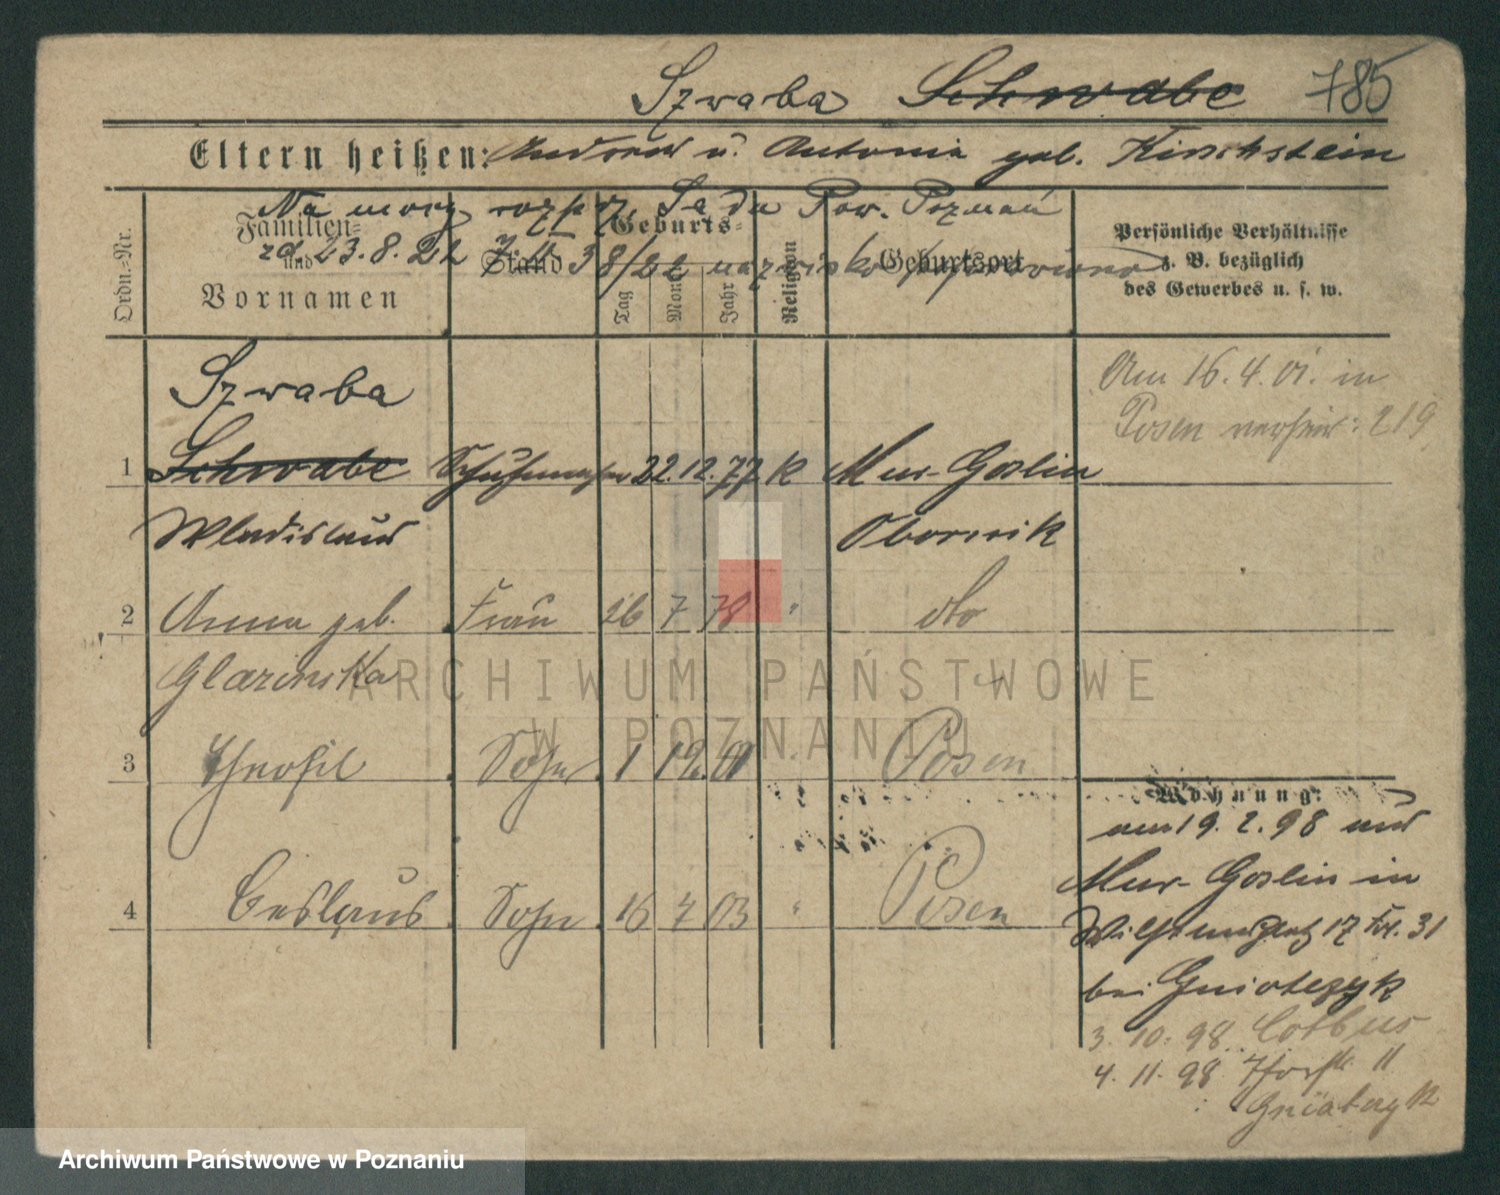 Szwaba Schwabe 785
Eltern heißen: Andreas u. Antonie geb. Kirschstein
Na mocy rozp. Sądu Pow. Poznań
zd. 23.8.22 38/22 nazwisko
Ordn.-Nr.
Familien-
und
Vornamen
Stand
Geburts-
Tag
Mon.
Jahr
Religion
Geburtsort
Persönliche Verhältnisse
z. B. bezüglich
des Gewerbes u. s. w.
Szwaba
Am 16.4.01. in
Posen verheir: 219
1 Schwabe Schuhmacher 22.12.77 K Mur-Goslin
Wladislaus Obornik
2 Anna geb. Frau 26 7 78 " dto
Glazinska
3 Theofil Sohn 1 12. 01 " Posen
Wohnung:
am 19.2.98 aus
Mur-Goslin in
4 Ceslaus Sohn 16 7 03 " Posen
17 31
bei
3. 10. 98. Cottbus
4. 11. 98 11
ARCHIWUM PAŃSTWOWE
W POZNANIU
Archiwum Państwowe w Poznaniu